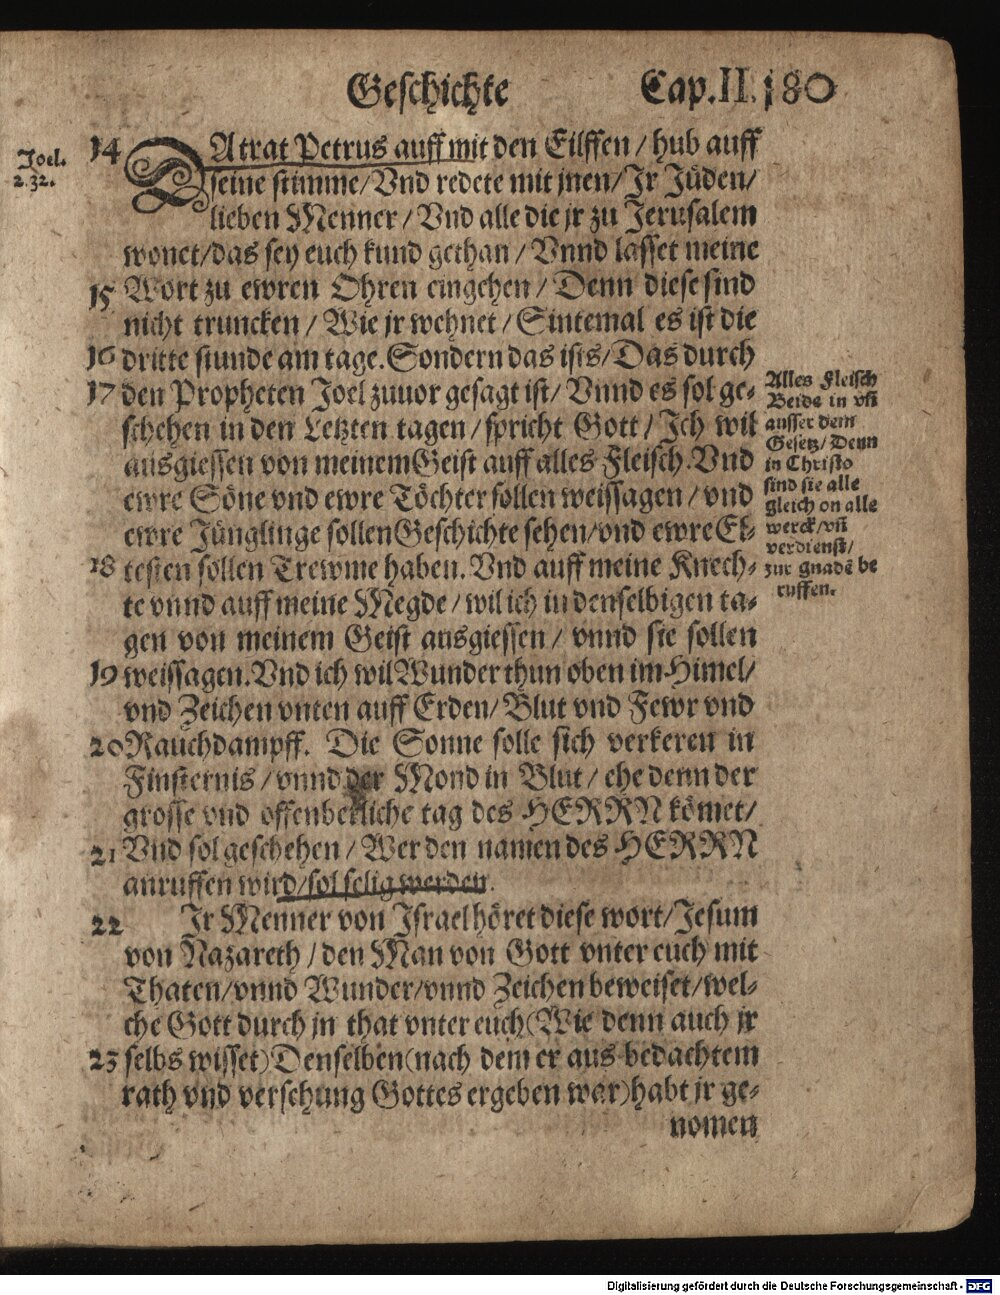 Geschichte Cap. II. 180
Joel.
2.32.
14 DA trat Petrus auff mit den Eilffen / hub auff
seine stimme / Vnd redete mit jnen / Jr Jüden /
lieben Menner / Vnd alle die jr zu Jerusalem
wonet / das sey euch kund gethan / Vnnd lasset meine
15 Wort zu ewren Ohren eingehen / Denn diese sind
nicht truncken / Wie jr wehnet / Sintemal es ist die
16 dritte stunde am tage. Sondern das ists / Das durch
17 den Propheten Joel zuuor gesagt ist / Vnnd es sol ge-
schehen in den Letzten tagen / spricht Gott / Ich wil
ausgiessen von meinem Geist auff alles Fleisch. Vnd
ewre Söne vnd ewre Töchter sollen weissagen / vnd
ewre Jünglinge sollen Geschichte sehen / vnd ewre El-
18 testen sollen Trewme haben. Vnd auff meine Knech-
te vnnd auff meine Megde / wil ich in denselbigen ta-
gen von meinem Geist ausgiessen / vnnd sie sollen
19 weissagen. Vnd ich wil Wunder thun oben im Himel /
vnd Zeichen vnten auff Erden / Blut vnd Fewr vnd
20 Rauchdampff. Die Sonne solle sich verkeren in
Finsternis / vnnd der Mond in Blut / ehe denn der
grosse vnd offenberliche tag des HERRN kömet /
21 Vnd sol geschehen / Wer den namen des HERRN
anruffen wird / sol selig werden.
22 Jr Menner von Israel höret diese wort / Jesum
von Nazareth / den Man von Gott vnter euch mit
Thaten / vnnd Wunder / vnnd Zeichen beweiset / wel-
che Gott durch jn that vnter euch (Wie denn auch jr
23 selbs wisset) Denselben (nach dem er aus bedachtem
rath vnd versehung Gottes ergeben war) habt jr ge-
nomen
Alles Fleisch
Beide in vñ
ausser dem
Gesetz / Denn
in Christo
sind sie alle
gleich on alle
werck / vñ
verdienst /
zur gnadē be
ruffen.
Digitalisierung gefördert durch die Deutsche Forschungsgemeinschaft - DFG